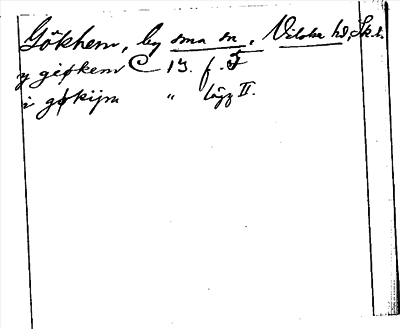 Gökhem, by sma sn, Vilske hd, Sk. l.
y giøkem C 13. f. 5
i gøkijm " lägg II.